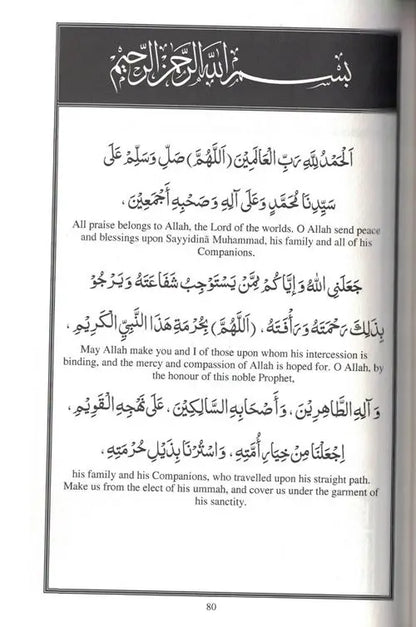 بسم الله الرحمن الرحيم
اَلْحَمْدُ لِلَّهِ رَبِّ الْعَالَمِيْنَ (اَللَّهُمَّ) صَلِّ وَسَلِّمْ عَلَى
سَيِّدِنَا مُحَمَّدٍ وَعَلَى آلِهِ وَصَحْبِهِ أَجْمَعِيْنَ ،
All praise belongs to Allah, the Lord of the worlds. O Allah send peace
and blessings upon Sayyidinā Muhammad, his family and all of his
Companions.
جَعَلَنِي اللهُ وَإِيَّاكُمْ مِمَّنْ يَسْتَوْجِبُ شَفَاعَتَهُ وَيَرْجُوْ
بِذَلِكَ رَحْمَتَهُ وَرَأْفَتَهُ ، (اَللَّهُمَّ) بِحُرْمَةِ هَذَا النَّبِيِّ الْكَرِيْمِ ،
May Allah make you and I of those upon whom his intercession is
binding, and the mercy and compassion of Allah is hoped for. O Allah, by
the honour of this noble Prophet,
وَآلِهِ الطَّاهِرِيْنَ ، وَأَصْحَابِهِ السَّالِكِيْنَ ، عَلَى نَهْجِهِ الْقَوِيْمِ ،
اِجْعَلْنَا مِنْ خِيَارِ أُمَّتِهِ ، وَاسْتُرْنَا بِذَيْلِ حُرْمَتِهِ ،
his family and his Companions, who travelled upon his straight path.
Make us from the elect of his ummah, and cover us under the garment of
his sanctity.
80